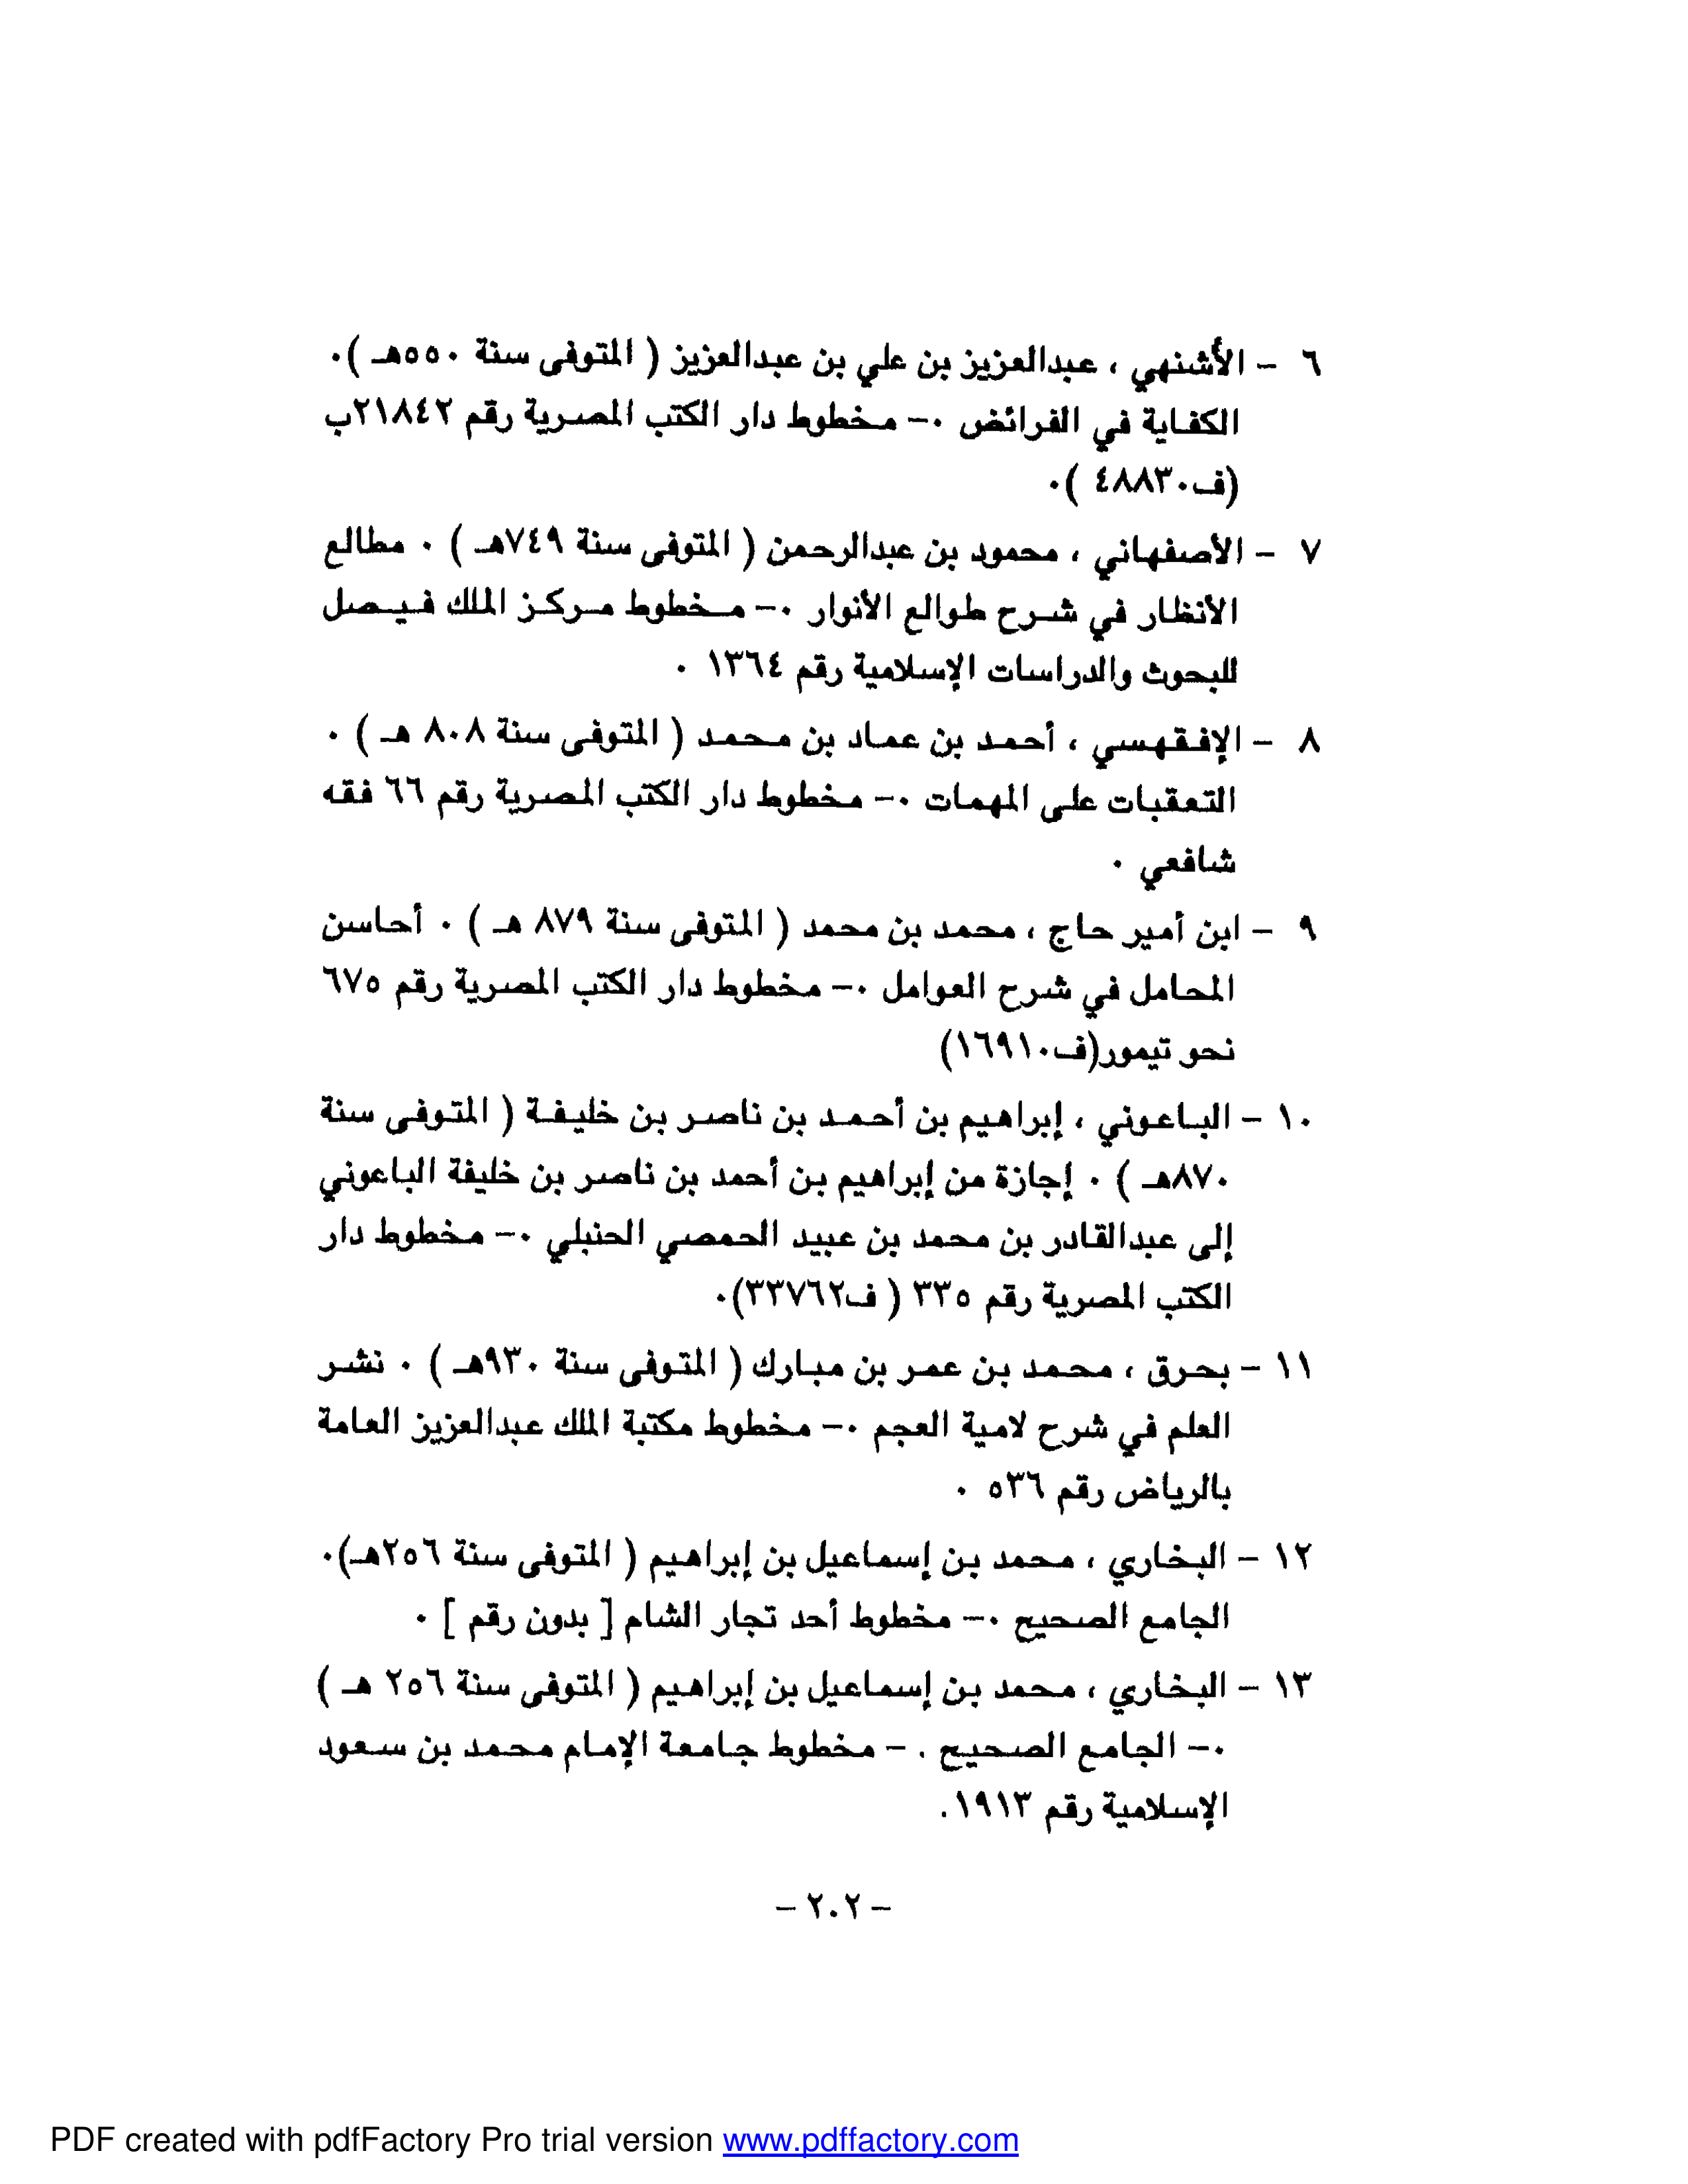 ٦ - الأشنهي ، عبدالعزيز بن علي بن عبدالعزيز ( المتوفى سنة ٥٥٠هـ ).
الكفاية في الفرائض .- مخطوط دار الكتب المصرية رقم ٢١٨٤٢ب
(ف٤٨٨٣٠ ).
٧ - الأصفهاني ، محمود بن عبدالرحمن ( المتوفى سنة ٧٤٩هـ ) . مطالع
الأنظار في شرح طوالع الأنوار .- مخطوط مركز الملك فيصل
للبحوث والدراسات الإسلامية رقم ١٣٦٤ .
٨ - الإفقهسي ، أحمد بن عماد بن محمد ( المتوفى سنة ٨٠٨ هـ ) .
التعقبات على المهمات .- مخطوط دار الكتب المصرية رقم ٦٦ فقه
شافعي .
٩ - ابن أمير حاج ، محمد بن محمد ( المتوفى سنة ٨٧٩ هـ ) . أحاسن
المحامل في شرح العوامل .- مخطوط دار الكتب المصرية رقم ٦٧٥
نحو تيمور(ف١٦٩١٠)
١٠ - الباعوني ، إبراهيم بن أحمد بن ناصر بن خليفة ( المتوفى سنة
٨٧٠هـ ) . إجازة من إبراهيم بن أحمد بن ناصر بن خليفة الباعوني
إلى عبدالقادر بن محمد بن عبيد الحمصي الحنبلي .- مخطوط دار
الكتب المصرية رقم ٣٣٥ ( ف٣٣٧٦٢).
١١ - بحرق ، محمد بن عمر بن مبارك ( المتوفى سنة ٩٣٠هـ ) . نشر
العلم في شرح لامية العجم .- مخطوط مكتبة الملك عبدالعزيز العامة
بالرياض رقم ٥٣٦ .
١٢ - البخاري ، محمد بن إسماعيل بن إبراهيم ( المتوفى سنة ٢٥٦هـ).
الجامع الصحيح .- مخطوط أحد تجار الشام [ بدون رقم ] .
١٣ - البخاري ، محمد بن إسماعيل بن إبراهيم ( المتوفى سنة ٢٥٦ هـ )
.- الجامع الصحيح . - مخطوط جامعة الإمام محمد بن سعود
الإسلامية رقم ١٩١٣.
- ٢٠٢ -
PDF created with pdfFactory Pro trial version www.pdffactory.com